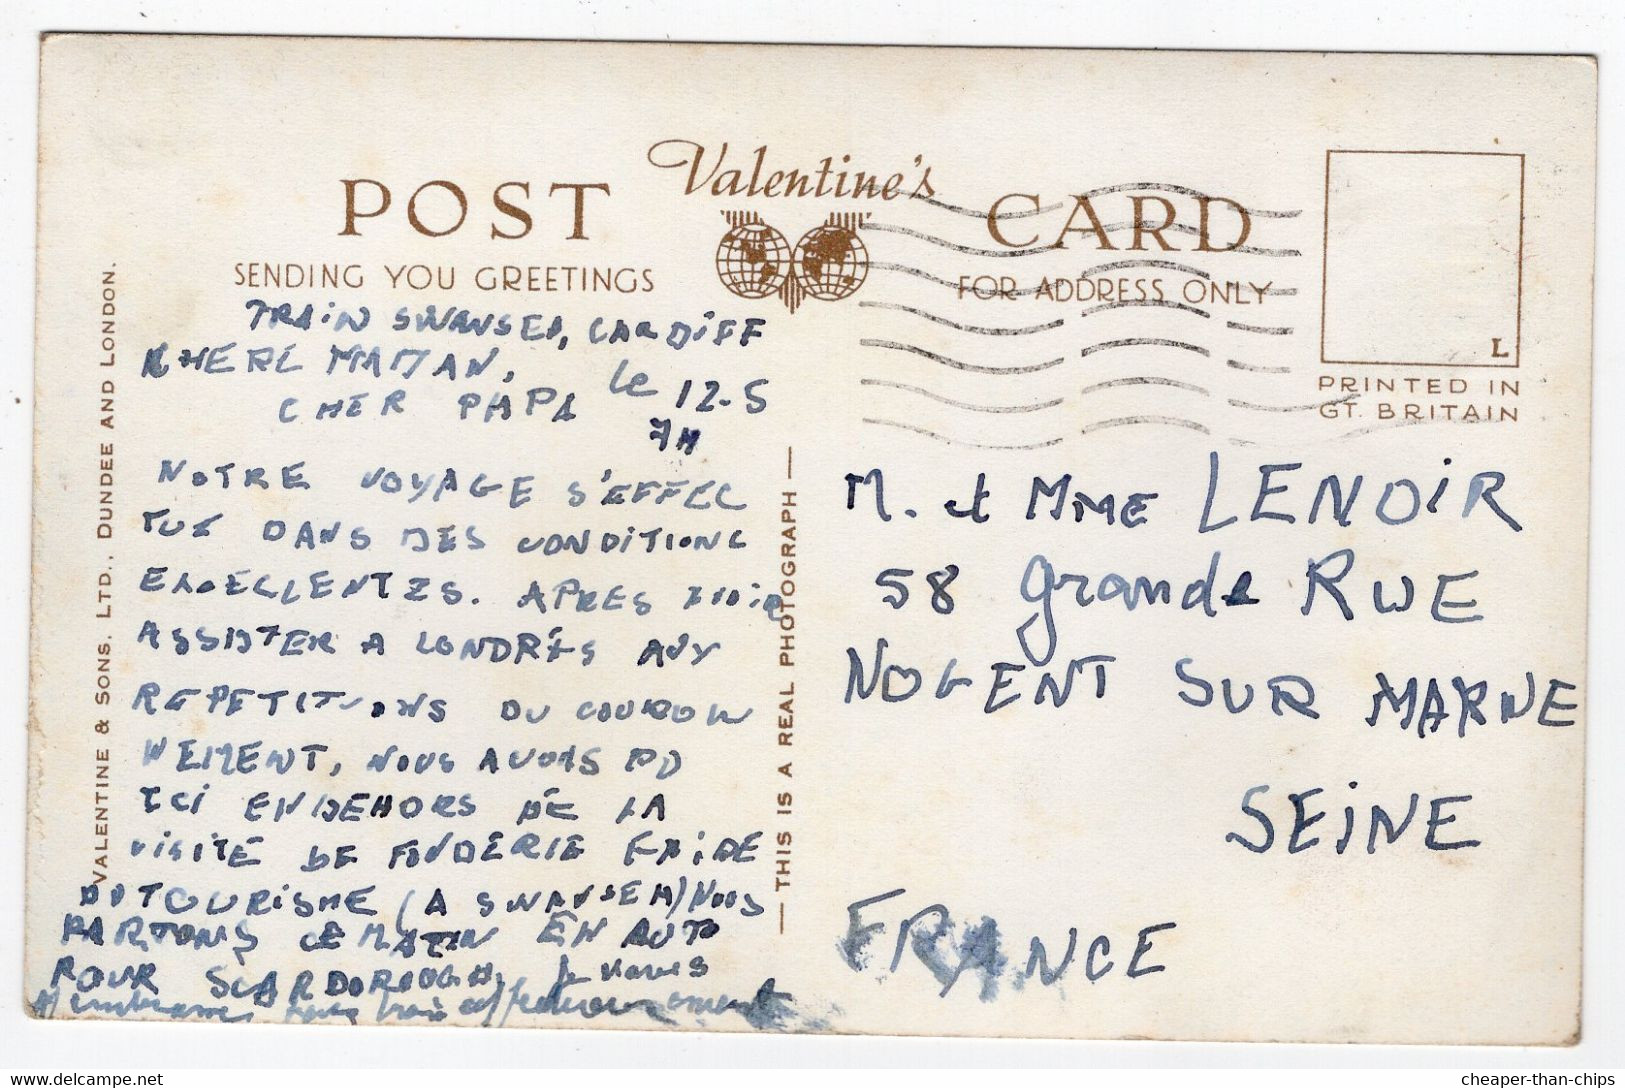 POST Valentine's CARD
SENDING YOU GREETINGS
FOR ADDRESS ONLY
L
PRINTED IN
GT. BRITAIN
VALENTINE & SONS. LTD., DUNDEE AND LONDON.
— THIS IS A REAL PHOTOGRAPH —
TRAIN SWANSEA, CARDIFF
CHERE MAMAN,
CHER PAPA le 12-5
7H
NOTRE VOYAGE S'EFFEC
TUE DANS DES CONDITIONS
EXCELLENTES. APRES AVOIR
ASSISTER A LONDRES AUX
REPETITIONS DU COURON
NEMENT, NOUS AVONS PU
ICI EN DEHORS DE LA
VISITE DE FONDERIE FAIRE
DU TOURISME (A SWANSEA) NOUS
PARTONS CE MATIN EN AUTO
POUR SCARBOROUGH, Je vous
embrasse tous trois affectueusement
M. et MME LENOIR
58 Grande RUE
NOGENT SUR MARNE
SEINE
FRANCE
cheaper-than-chips